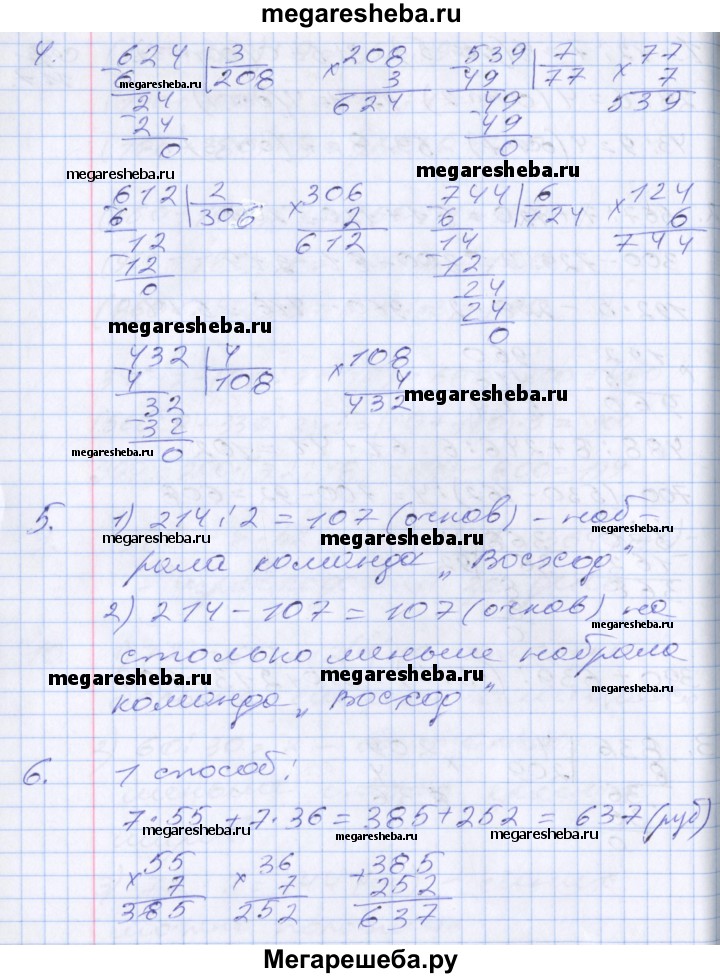 megaresheba.ru
4. 624 | 3 208 539 | 7 77
6 208 × 3 49 77 × 7
24 624 49 539
24 49
0 0
megaresheba.ru
megaresheba.ru
megaresheba.ru
612 | 2 306 744 | 6 124
6 306 × 2 6 124 × 6
12 612 14 744
12 12
0 24
24
0
megaresheba.ru
432 | 4 108
4 108 × 4
32 432
32
0
megaresheba.ru
megaresheba.ru
5. 1) 214 : 2 = 107 (очков) – наб-
megaresheba.ru
megaresheba.ru
megaresheba.ru
рала команда „Восход"
2) 214 – 107 = 107 (очков) на
megaresheba.ru
столько меньше набрала
megaresheba.ru
megaresheba.ru
megaresheba.ru
команда „Восход"
6. 1 способ:
7 · 55 + 7 · 36 = 385 + 252 = 637 (руб)
megaresheba.ru
megaresheba.ru
megaresheba.ru
55 36 385
× 7 × 7 + 252
385 252 637
Мегарешеба.ру